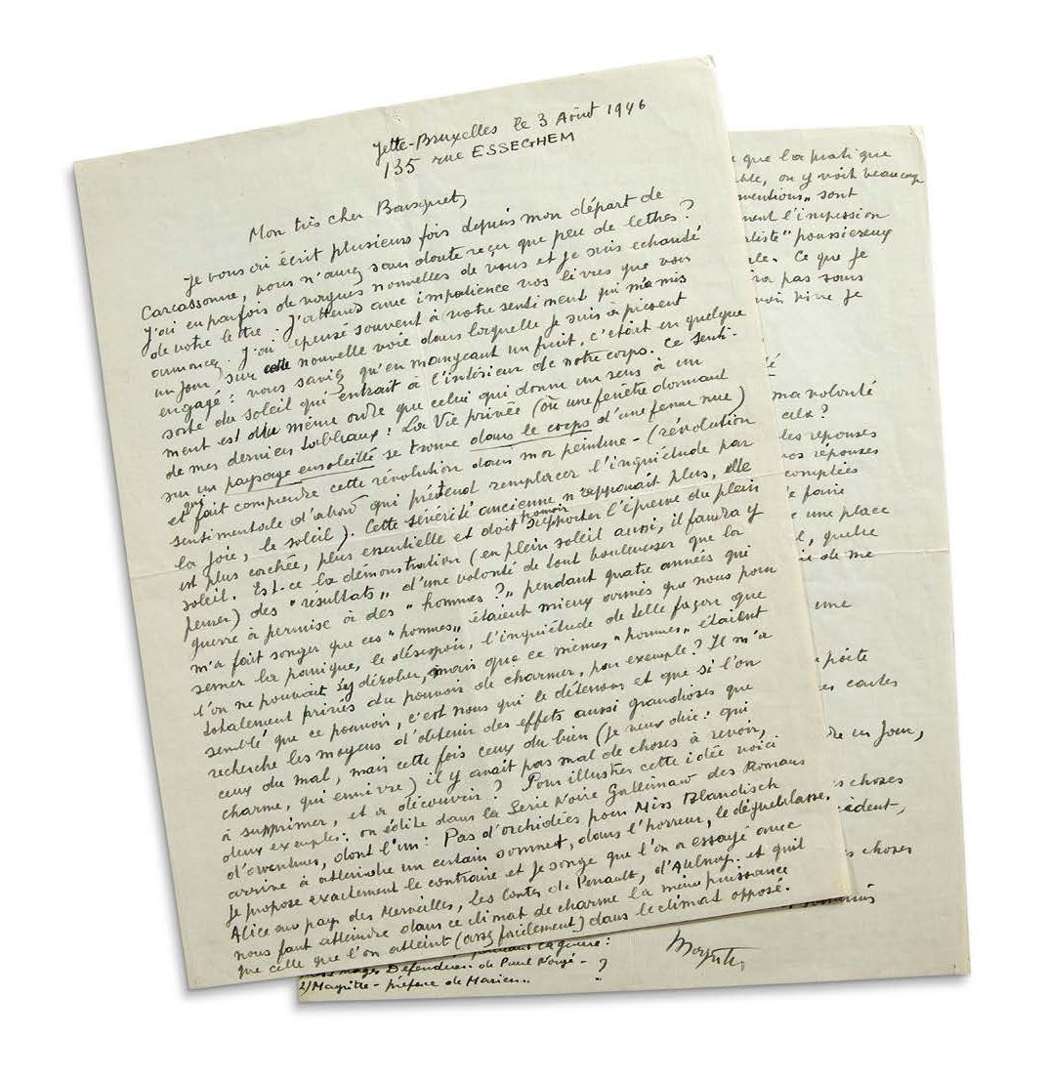 Jette-Bruxelles le 3 Août 1946
135 rue ESSEGHEM
Mon très cher Bousquet,
Je vous ai écrit plusieurs fois depuis mon départ de
Carcassonne, vous n'avez sans doute reçu que peu de lettres?
J'ai eu parfois de vagues nouvelles de vous et je suis echaudé
de votre lettre. J'attends avec impatience vos livres que vous
annoncez. J'ai repensé souvent à votre sentiment qui m'a mis
un jour sur cette nouvelle voie dans laquelle je suis à présent
engagé : vous saviez qu'en mangeant un fruit, c'était en quelque
sorte du soleil qui entrait à l'intérieur de notre corps. Ce senti-
ment est du même ordre que celui qui donne un sens à un
de mes derniers tableaux : La Vie privée (où une fenêtre donnant
sur un paysage ensoleillé se trouve dans le corps d'une femme nue)
et qui fait comprendre cette révolution dans ma peinture - (révolution
sentimentale d'abord qui prétend remplacer l'inquiétude par
la joie, le soleil). Cette sévérité ancienne n'apparait plus, elle
est plus cachée, plus essentielle et doit pouvoir supporter l'épreuve du plein
soleil. Est-ce la démonstration (en plein soleil aussi, il faudra y
penser) des "résultats" d'une volonté de tout bouleverser que la
guerre a permise à des "hommes?" pendant quatre années qui
m'a fait songer que ces "hommes" étaient mieux armés que nous pour
semer la panique, le désespoir, l'inquiétude de telle façon que
l'on ne pouvait s'y dérober, mais que ce mêmes "hommes" étaient
totalement privés du pouvoir de charmer, par exemple? Il m'a
semblé que ce pouvoir, c'est nous qui le détenons et que si l'on
recherche les moyens d'obtenir des effets aussi grandioses que
ceux du mal, mais cette fois ceux du bien (je veux dire : qui
charme, qui enivre) il y avait pas mal de choses à revoir,
à supprimer, et à découvrir? Pour illustrer cette idée voici
deux exemples : on édite dans la Serie Noire Gallimard des Romans
d'aventures, dont l'un : Pas d'orchidées pour Miss Blandisch
arrive à atteindre un certain sommet, dans l'horreur, le dégueulasse,
Je propose exactement le contraire et je songe que l'on a essayé avec
Alice au pays des Merveilles, les Contes de Perrault, d'Aulnoy. et qu'il
nous faut atteindre dans ce climat de charme la même puissance
que celle que l'on atteint (assez facilement) dans le climat opposé.
que la pratique
ble, on y voit beaucoup
mentions" sont
ment l'impression
aliste" poussiereux
le. Ce que je
ra pas sans
vivre je
té
ma volonté
les reponses
vos réponses
complies
faire
une place
l, quelque
de me
eme
poète
es cartes
re un jour,
s choses
cédent,
es choses
Magritte
Images Défendues de Paul Nougé -
2) Magritte - préface de Marien. - ?